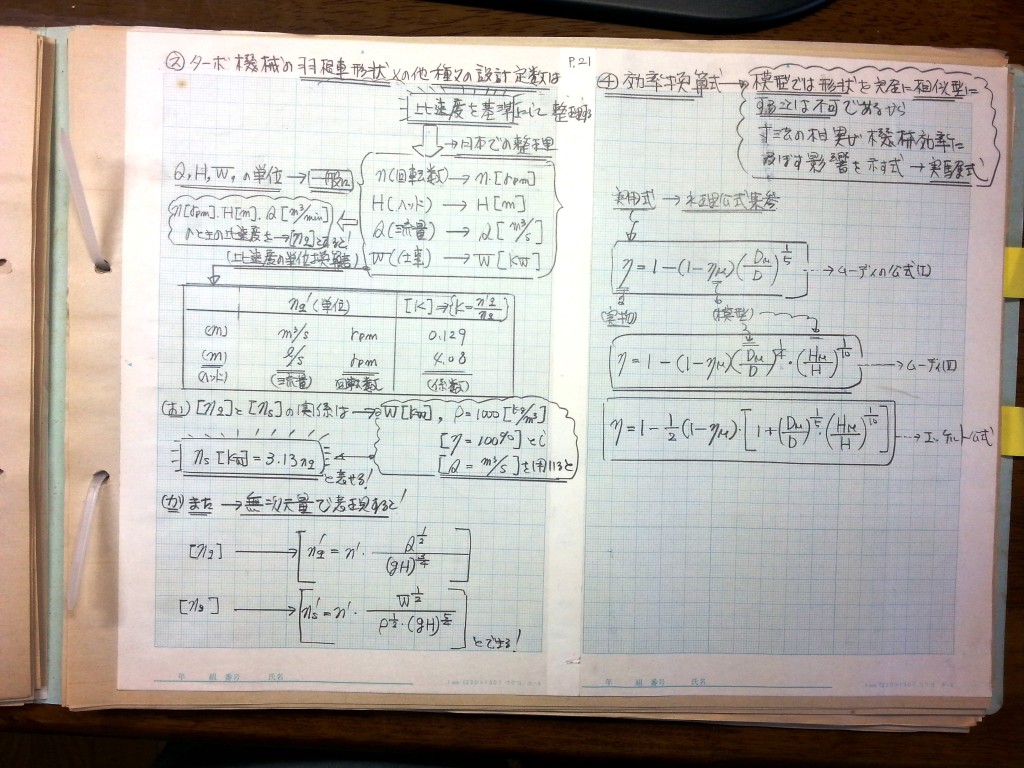 P.21
㋓ ターボ機械の羽根車形状その他種々の設計定数は
比速度を基準にして整理する
→日本での整理
Q, H, W, の単位 → 一般に
n(回転数) → n・[rpm]
H(ヘッド) → H[m]
Q(流量) → Q[m³/s]
W(仕事) → W[KW]
n[rpm]. H[m]. Q[m³/min]
のときの比速度を→[nq]とすると!
(比速度の単位換算)
nq'(単位) [K]⇒{K=nq'/nq}
(m) m³/s rpm 0.129
(m) ℓ/s rpm 4.08
(ヘッド) (流量) 回転数 (係数)
(オ) [nq]と[ns]の関係は → W[KW], ρ=1000[kg/m³]
[η=100%]とし
[Q=m³/s]を用いると
ns[KW]=3.13nq
と表せる!
(カ) また → 無次元量で表現すると!
[nq] → [nq'=n'・Q^{1/2}/(gH)^{3/4}]
[ns] → [ns'=n'・W^{1/2}/ρ^{1/2}・(gH)^{5/4}]
とできる!
年 組 番号 氏名
④ 効率換算式 → 模型では形状を完全に相似型に
することは不可であるから
寸法の相異が機械効率に
及ぼす影響を示す式 → 実験式
実用式 → 水理公式集参
η=1-(1-ηM)(DM/D)^{1/5} …→ムーディの公式(I)
(実物) (模型)
η=1-(1-ηM)(DM/D)^{1/4}・(HM/H)^{1/10} →ムーディ(II)
η=1-1/2(1-ηM)・[1+(DM/D)^{1/5}・(HM/H)^{1/10}] …→エッケルト公式
年 組 番号 氏名